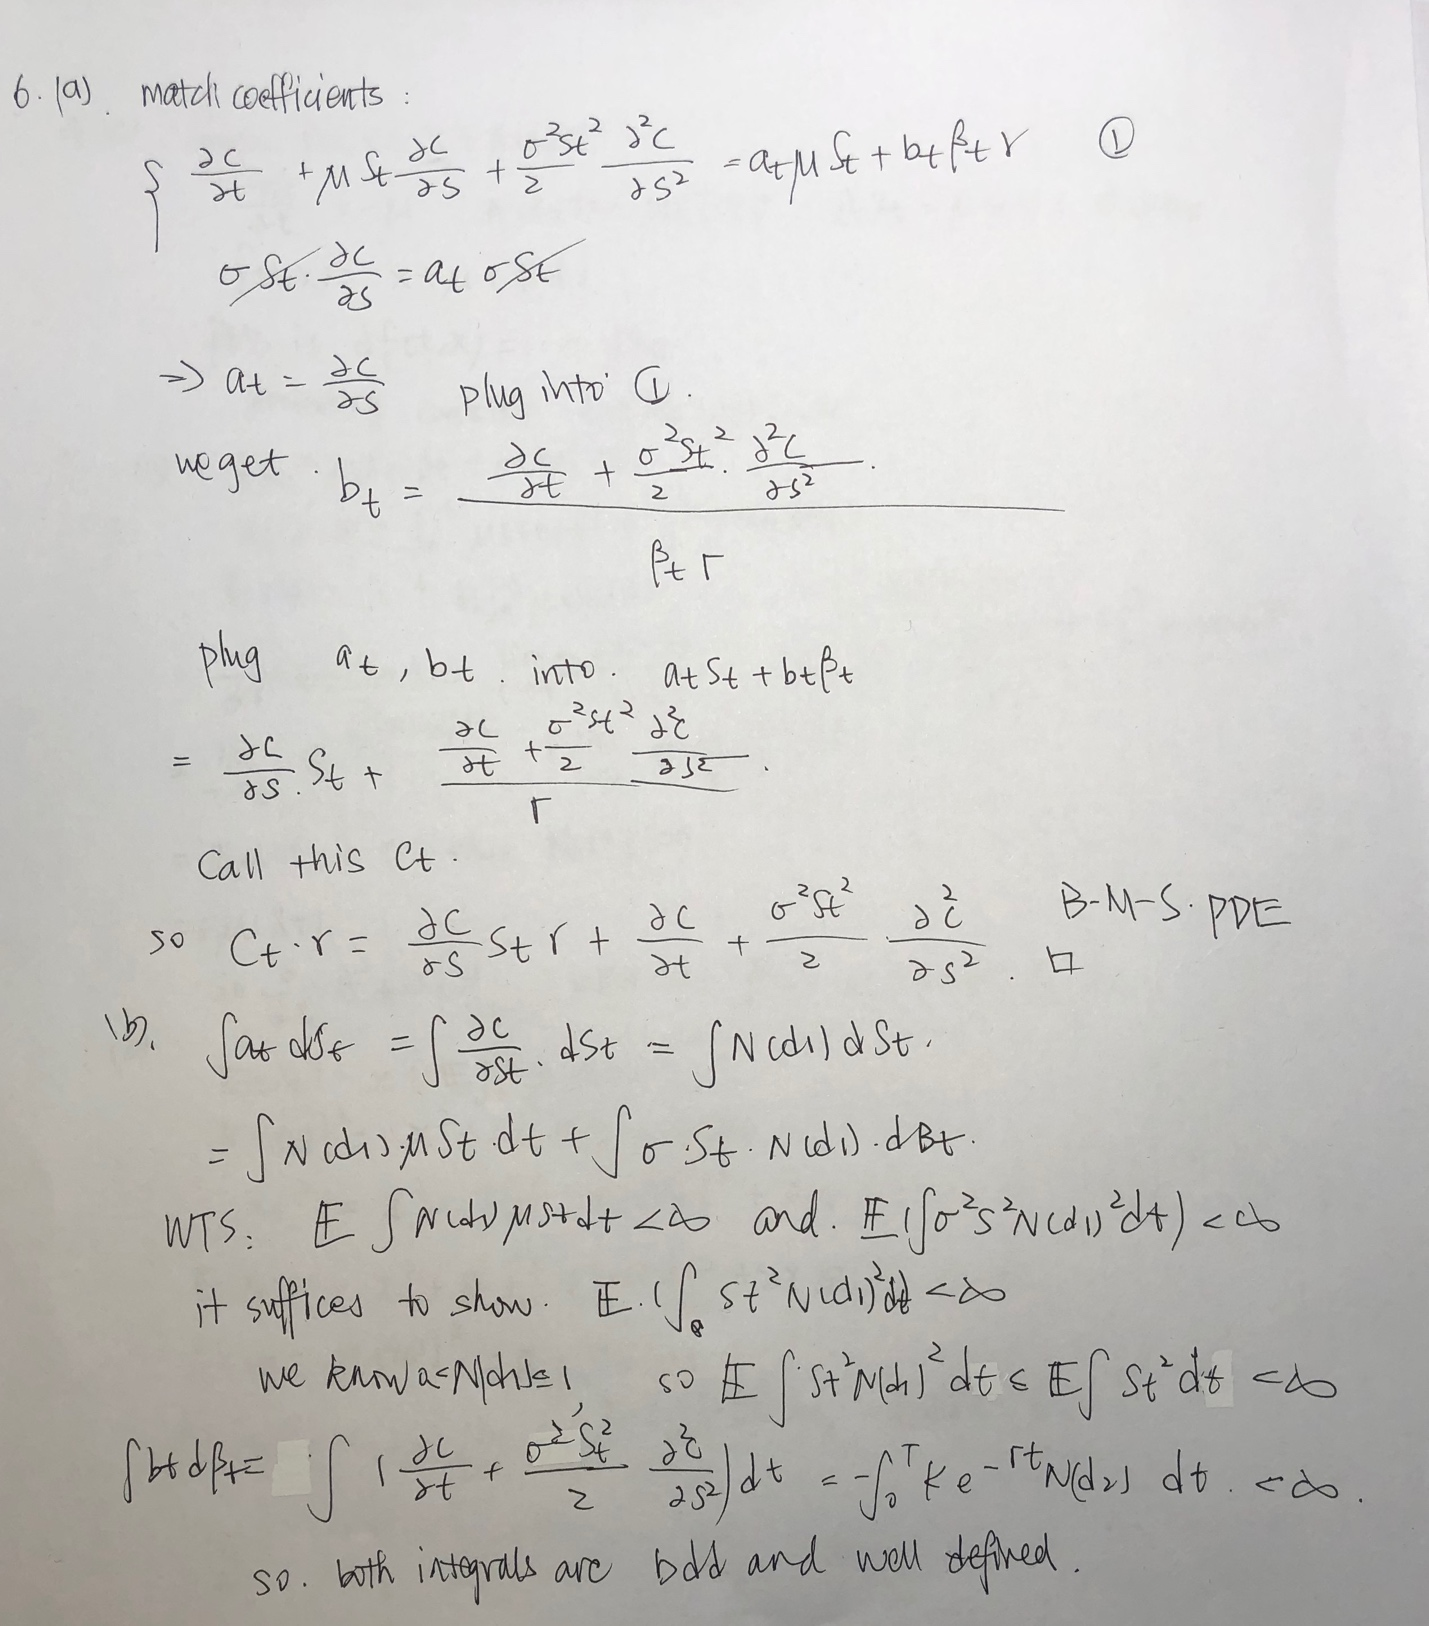 6. (a). match coefficients:
{ ∂C/∂t + μ St ∂C/∂S + σ²St²/2 ∂²C/∂S² = at μ St + bt βt r ①
σ St · ∂C/∂S = at σ St
⇒ at = ∂C/∂S plug into ①.
we get. bt = (∂C/∂t + σ²St²/2 · ∂²C/∂S²) / (βt r)
plug at, bt. into. at St + bt βt
= ∂C/∂S · St + (∂C/∂t + σ²St²/2 ∂²C/∂S²) / r.
Call this Ct.
so Ct · r = ∂C/∂S St r + ∂C/∂t + σ²St²/2 · ∂²C/∂S². B-M-S. PDE □
(b). ∫at dSt = ∫ ∂C/∂St · dSt = ∫N(d1) dSt.
= ∫N(d1)·μ St·dt + ∫σ·St·N(d1)·dBt.
WTS: 𝔼 ∫N(d1) μ St dt < ∞ and. 𝔼(∫σ²S²N(d1)²dt) < ∞
it suffices to show. 𝔼.(∫₀ St²N(d1)²dt) < ∞
we know 0<N(d1)≤1, so 𝔼 ∫St²N(d1)² dt ≤ 𝔼∫ St² dt < ∞
∫bt dβt = ∫(∂C/∂t + σ²St²/2 ∂²C/∂S²)dt = -∫₀ᵀ K e^-rt N(d2) dt. < ∞.
so. both integrals are bdd and well defined.